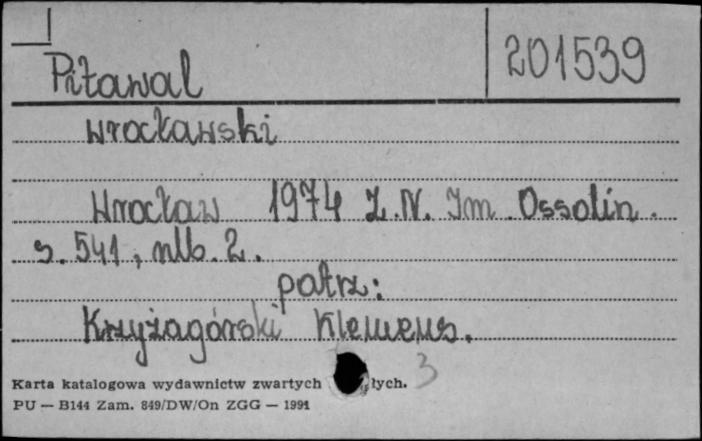 201539
Pitawal
wrocławski
Wrocław 1974 Z.N. Im. Ossolin.
s. 541, nlb. 2.
patrz:
Krzyżagórski Klemens.
3
Karta katalogowa wydawnictw zwartych łych.
PU — B144 Zam. 849/DW/On ZGG — 1991